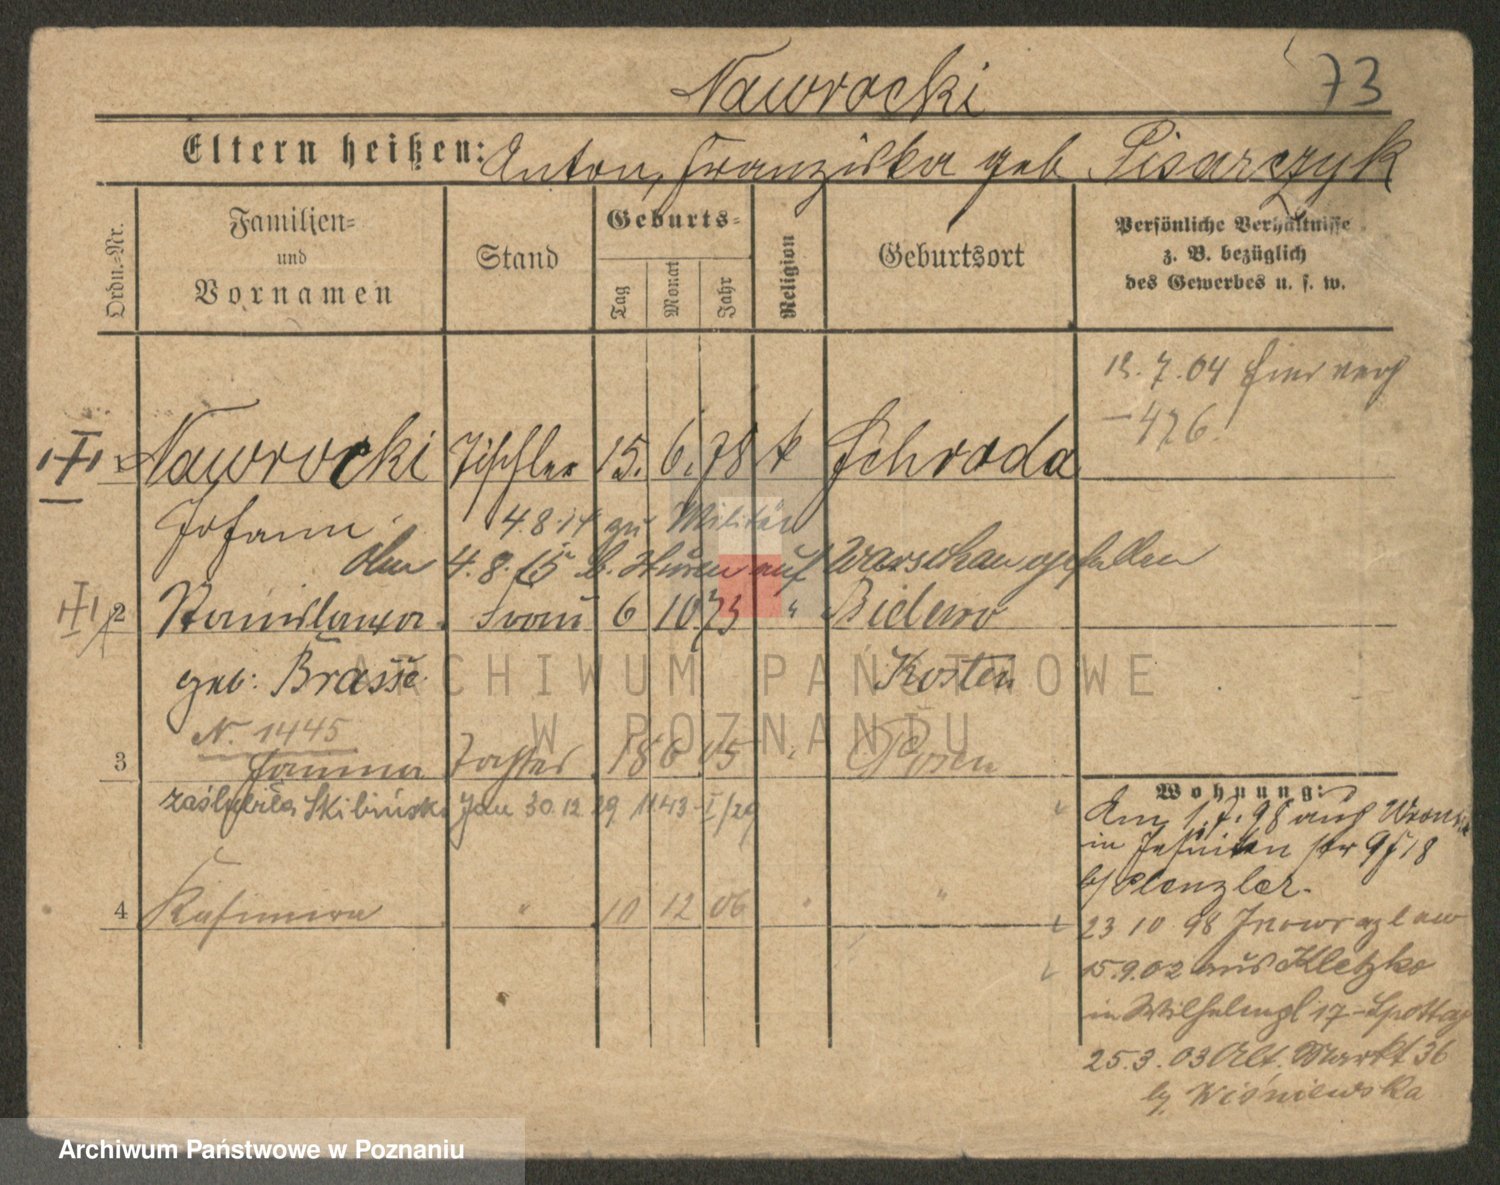 Nawrocki 73
Eltern heißen: Anton, Franziska geb Pisarczyk
Ordn.-Nr.
Familien-
und
Vornamen
Stand
Geburts-
Tag
Monat
Jahr
Religion
Geburtsort
Persönliche Verhältnisse
z. B. bezüglich
des Gewerbes u. s. w.
12.7.04 hier verh
476.
1 Nawrocki Tischler 15. 6. 78 k Schroda
Johann
4.8.14 zu Militär
den 4.8.15 b. Sturm auf Warschau gefallen
2 Stanislawa Frau 6 10 73 " 
geb: Brasse Kosten
N. 1445
3 Joanna Tochter 18 6 05 " Posen
zaślubiła Skibiński Jan 30.12 29 1143-I/29
4 Kasimira " 10 12 06 " "
Wohnung:
Am 1.7.98 aus
in Jesuiten str
b/ Plenzler.
23 10 98 Inowrazlaw
15.9.02 aus Kletzko
in Wilhelmspl 17
25.3.03 Alt. Markt 36
b/ Wiśniewska
ARCHIWUM PAŃSTWOWE
W POZNANIU
Archiwum Państwowe w Poznaniu